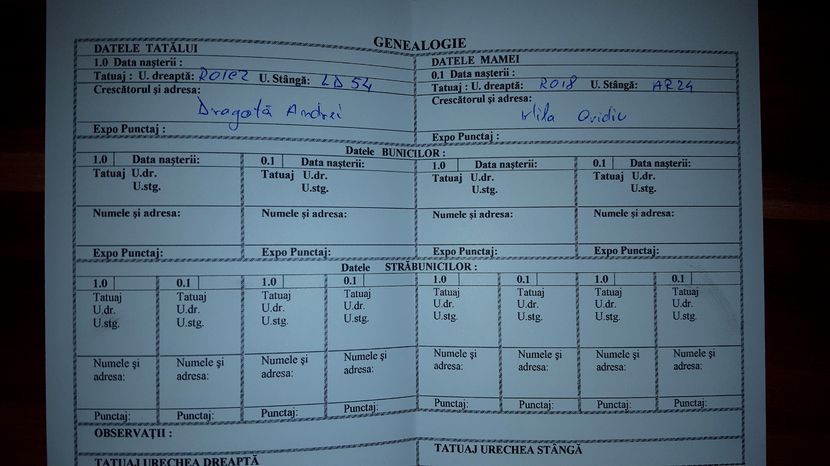 GENEALOGIE
DATELE TATĂLUI
1.0 Data naşterii :
Tatuaj : U. dreaptă: RO162 U. Stângă: LD 54
Crescătorul şi adresa:
Dragotă Andrei
Expo Punctaj :
DATELE MAMEI
0.1 Data naşterii :
Tatuaj : U. dreaptă: RO18 U. Stângă: AR24
Crescătorul şi adresa:
Mila Ovidiu
Expo Punctaj :
Datele BUNICILOR :
1.0 Data naşterii: 0.1 Data naşterii: 1.0 Data naşterii: 0.1 Data naşterii:
Tatuaj U.dr. Tatuaj U.dr. Tatuaj U.dr. Tatuaj U.dr.
U.stg. U.stg. U.stg. U.stg.
Numele şi adresa: Numele şi adresa: Numele şi adresa: Numele şi adresa:
Expo Punctaj: Expo Punctaj: Expo Punctaj: Expo Punctaj:
Datele STRĂBUNICILOR :
1.0 0.1 1.0 0.1 1.0 0.1 1.0 0.1
Tatuaj Tatuaj Tatuaj Tatuaj Tatuaj Tatuaj Tatuaj Tatuaj
U.dr. U.dr. U.dr. U.dr. U.dr. U.dr. U.dr. U.dr.
U.stg. U.stg. U.stg. U.stg. U.stg. U.stg. U.stg. U.stg.
Numele şi Numele şi Numele şi Numele şi Numele şi Numele şi Numele şi Numele şi
adresa: adresa: adresa: adresa: adresa: adresa: adresa: adresa:
Punctaj: Punctaj: Punctaj: Punctaj: Punctaj: Punctaj: Punctaj: Punctaj:
OBSERVAŢII :
TATUAJ URECHEA DREAPTĂ TATUAJ URECHEA STÂNGĂ